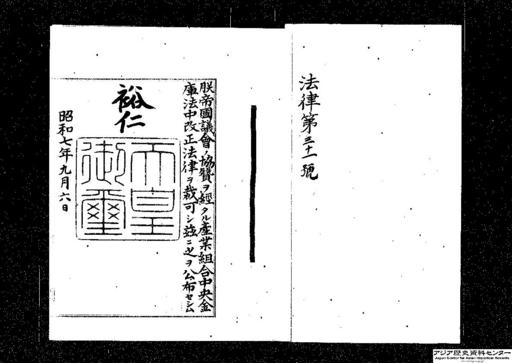 法律第三十一號
朕帝國議會ノ協贊ヲ經タル產業組合中央金
庫法中改正法律ヲ裁可シ茲ニ之ヲ公布セシム
裕仁
天皇
御璽
昭和七年九月六日
アジア歴史資料センター
Japan Center for Asian Historical Records